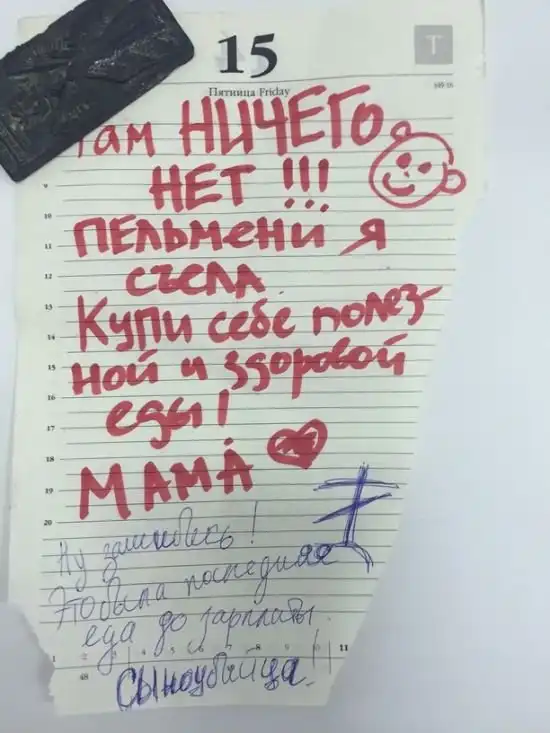 15
Т
Пятница Friday
там НИЧЕГО
НЕТ !!!
ПЕЛЬМЕНИ Я
СЪЕЛА
Купи себе полез-
ной и здоровой
еды!
МАМА
9
10
11
12
13
14
15
16
17
18
19
20
Ну зашибись!
Это была последняя
еда до зарплаты.
Сыноубийца!